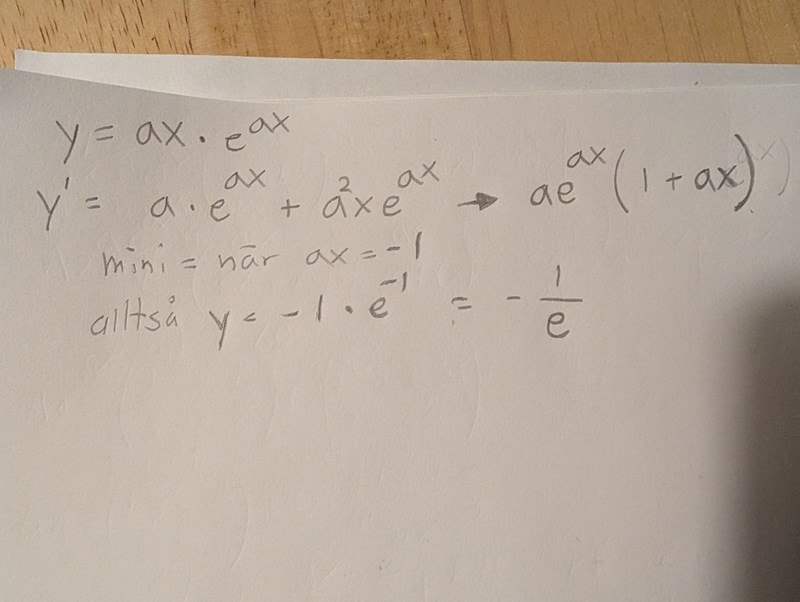 y = ax · e^ax
y' = a · e^ax + a²xe^ax → ae^ax (1 + ax)
mini = när ax = -1
alltså y = -1 · e^-1 = - 1/e